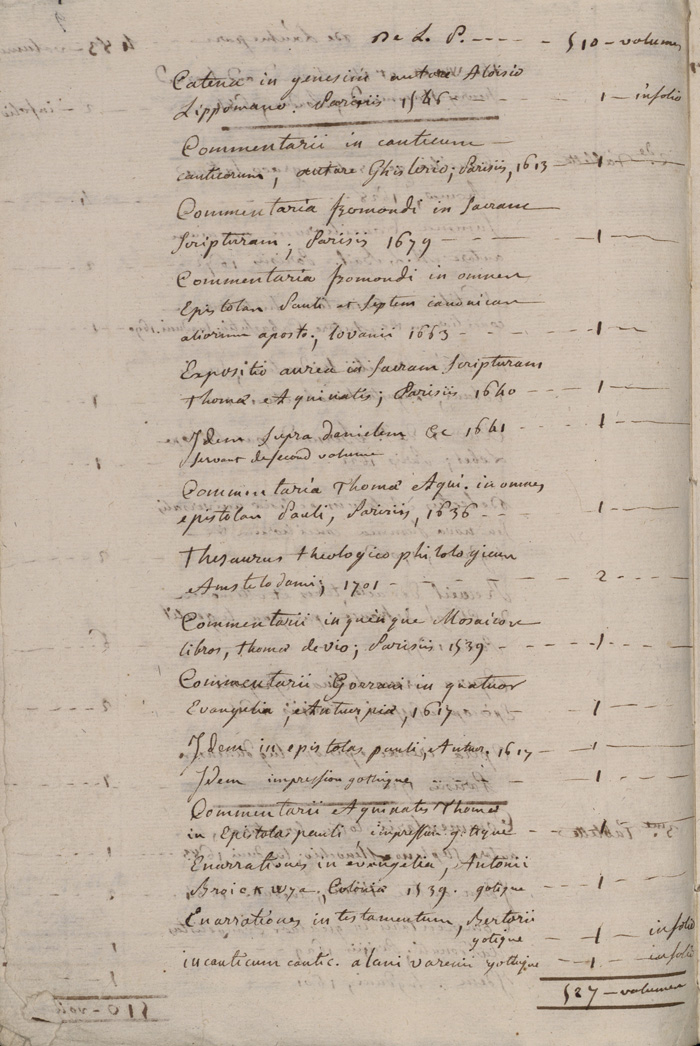 De L. P. - - - - - 510 - volumes
Catena in genesim autore Aloisio
Lippomano. Parisiis 1546 1 - infolio
Commentarii in canticum -
canticorum, autore Ghislerio; Parisiis, 1613 - 1 -
Commentaria fromondi in Sacram
Scripturam; Parisiis 1679 - - - - 1 -
Commentaria fromondi in omnes
Epistolas Pauli et septem canonicas
aliorum aposto., lovanii 1663 - - - 1 -
Expositio aurea in Sacram Scripturam
Thomæ Aquinatis; Parisiis 1640 - - - 1 - - -
Idem supra danielem &c 1641 1 - -
servant de second volume
Commentaria Thomæ Aqui. in omnes
epistolas Pauli, Parisiis, 1636 - - - 1 - - -
Thesaurus theologico philologicus
Amstelodami; 1701 - - - 2 - - - -
Commentarii in quinque Mosaicos
libros, thomæ de vio; Parisiis 1539 - - - 1 - - -
Commentarii Gorrani in quatuor
Evangelia, Antuerpiæ, 1617 1 - -
Idem in epistolas pauli, Antuer. 1617 - - 1 - -
Idem impression gothique 1 - - -
Commentarii Aquinatis Thomæ
in Epistolas pauli impression gotique - 1
Enarrationes in evangelia, Antonii
Broickwya. Coloniæ 1539. gotique - 1 - -
Enarrationes in testamentum, Bertorii
gotique - 1 - infolio
in canticum cantic. alani varenii gothique - 1 - infolio
527 - volumes